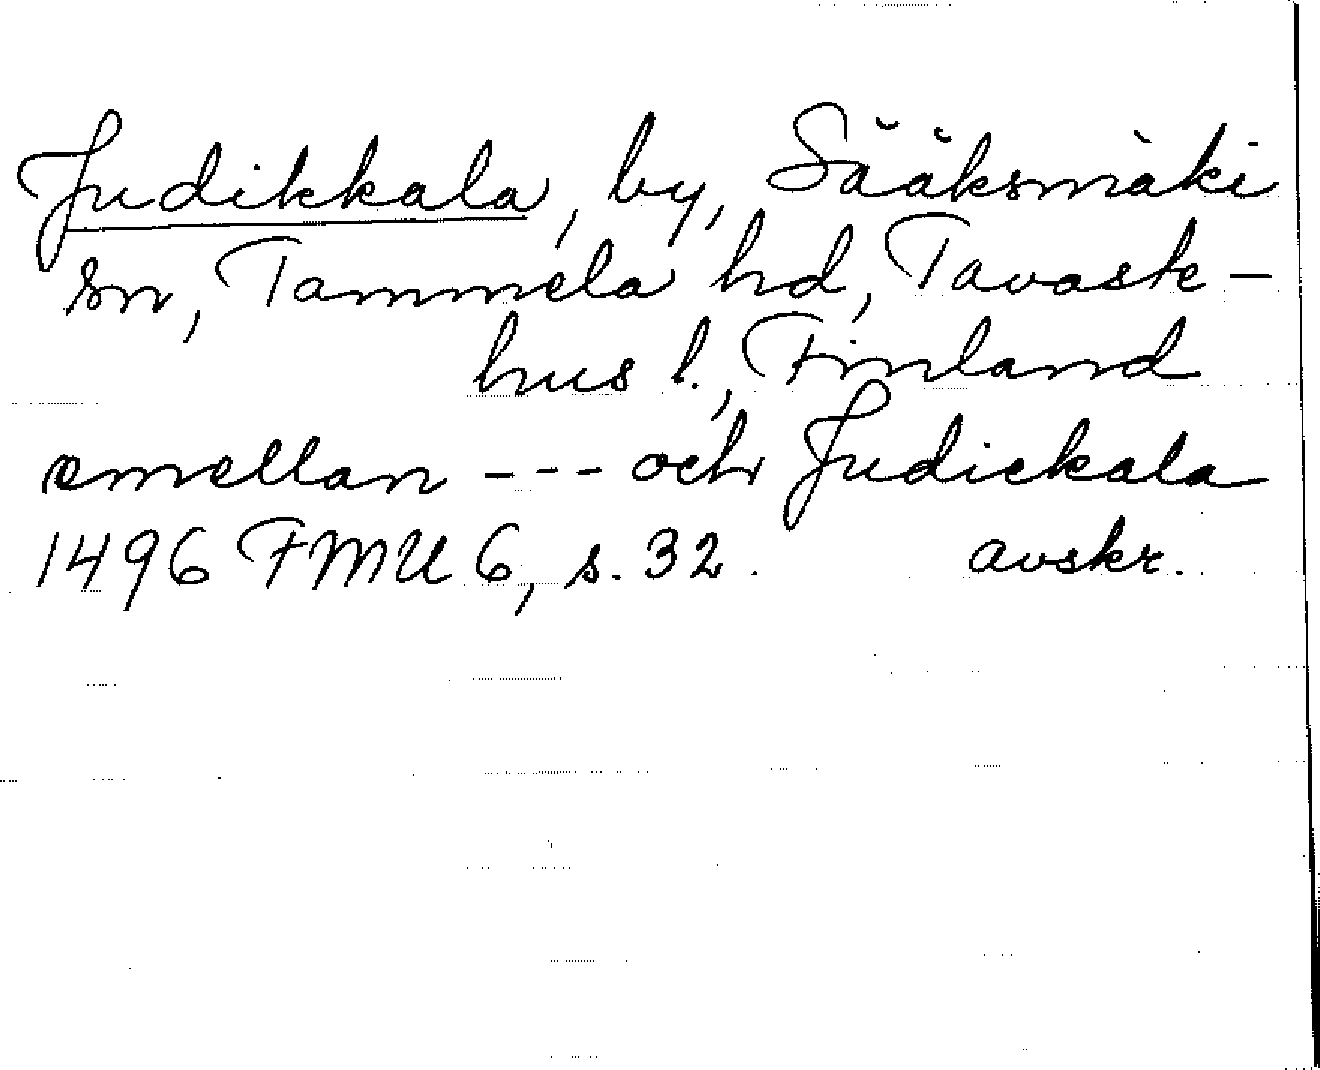 Judikkala, by, Sääksmäki
sn, Tammela hd, Tavaste-
hus l., Finland
emellan --- och Judickala
1496 FMU 6, s. 32. avskr.